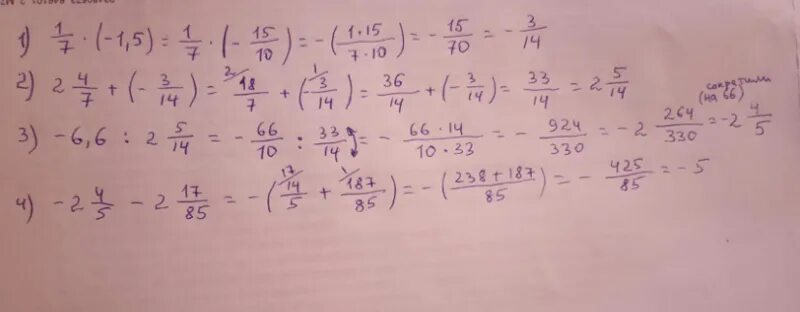 1) 1/7 · (-1,5) = 1/7 · (- 15/10) = -(1·15/7·10) = - 15/70 = - 3/14
2) 2 4/7 + (- 3/14) = ²⁄18/7 + (- ¹⁄3/14) = 36/14 + (- 3/14) = 33/14 = 2 5/14
сократили
(на 66)
3) -6,6 : 2 5/14 = - 66/10 : 33/14 = - 66·14/10·33 = - 924/330 = -2 264/330 = -2 4/5
4) -2 4/5 - 2 17/85 = -(¹⁷⁄14/5 + ¹⁄187/85) = -(238+187/85) = - 425/85 = -5